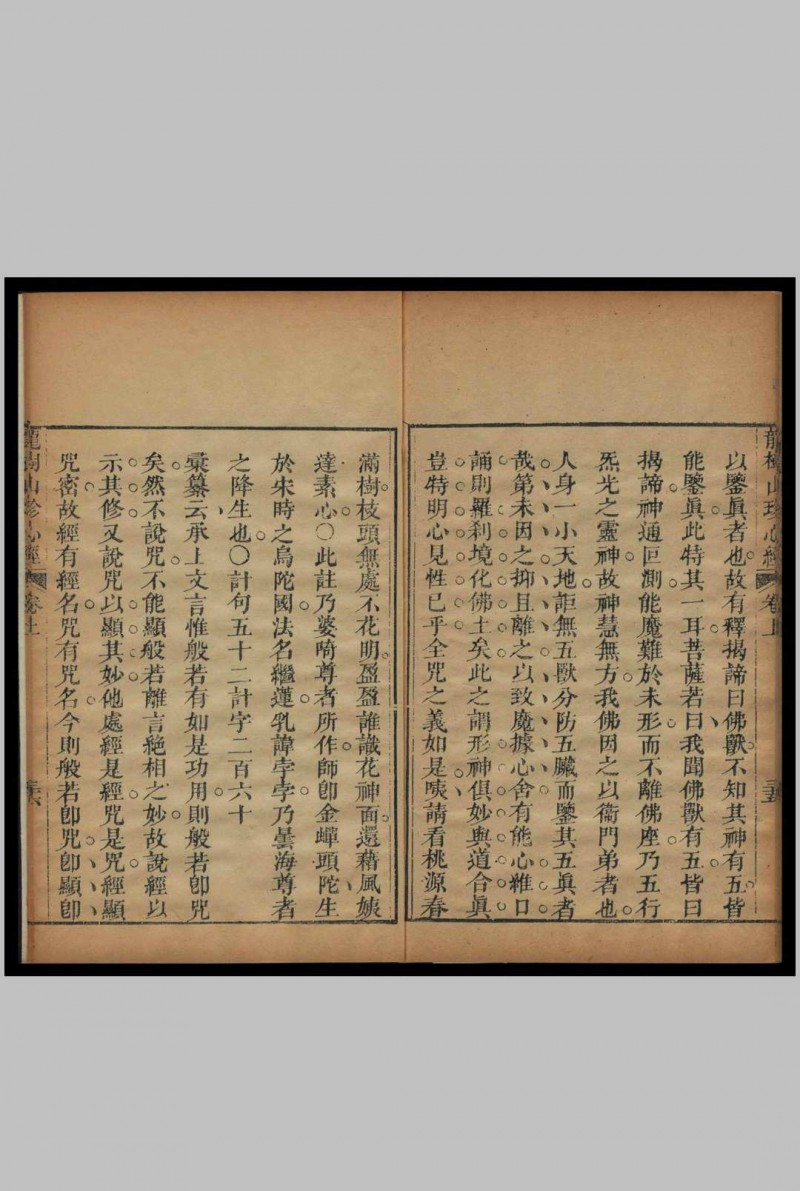 龍樹山珍心經 卷上 三十五
以鑒眞者也故有釋揭諦曰佛獸不知其神有五皆
能鑒眞此特其一耳菩薩若曰我聞佛獸有五皆曰
揭諦神通叵測能魔難於未形而不離佛座乃五行
炁光之靈神故神慧無方我佛因之以衞門弟者也
人身一小天地詎無五獸分防五臟而鑒其五眞者
哉第未因之抑且離之以致魔據心舍有能心維口
誦則羅刹境化佛土矣此之謂形神俱妙與道合眞
豈特明心見性已乎全咒之義如是唊請看桃源春
滿樹枝頭無處不花明盈盈誰識花神面還藉風姨
達素心〇此註乃婆喃尊者所作師卽金蟬頭陀生
於宋時之烏陀國法名繼蓮乳諱孛孛乃曇海尊者
之降生也〇計句五十二計字二百六十
彙纂云承上文言惟般若有如是功用則般若卽咒
矣然不說咒不能顯般若離言絶相之妙故說經以
示其修又說咒以顯其妙他處經是經咒是咒經顯
咒密故經有經名咒有咒名今則般若卽咒卽顯卽
龍樹山珍心經 卷上